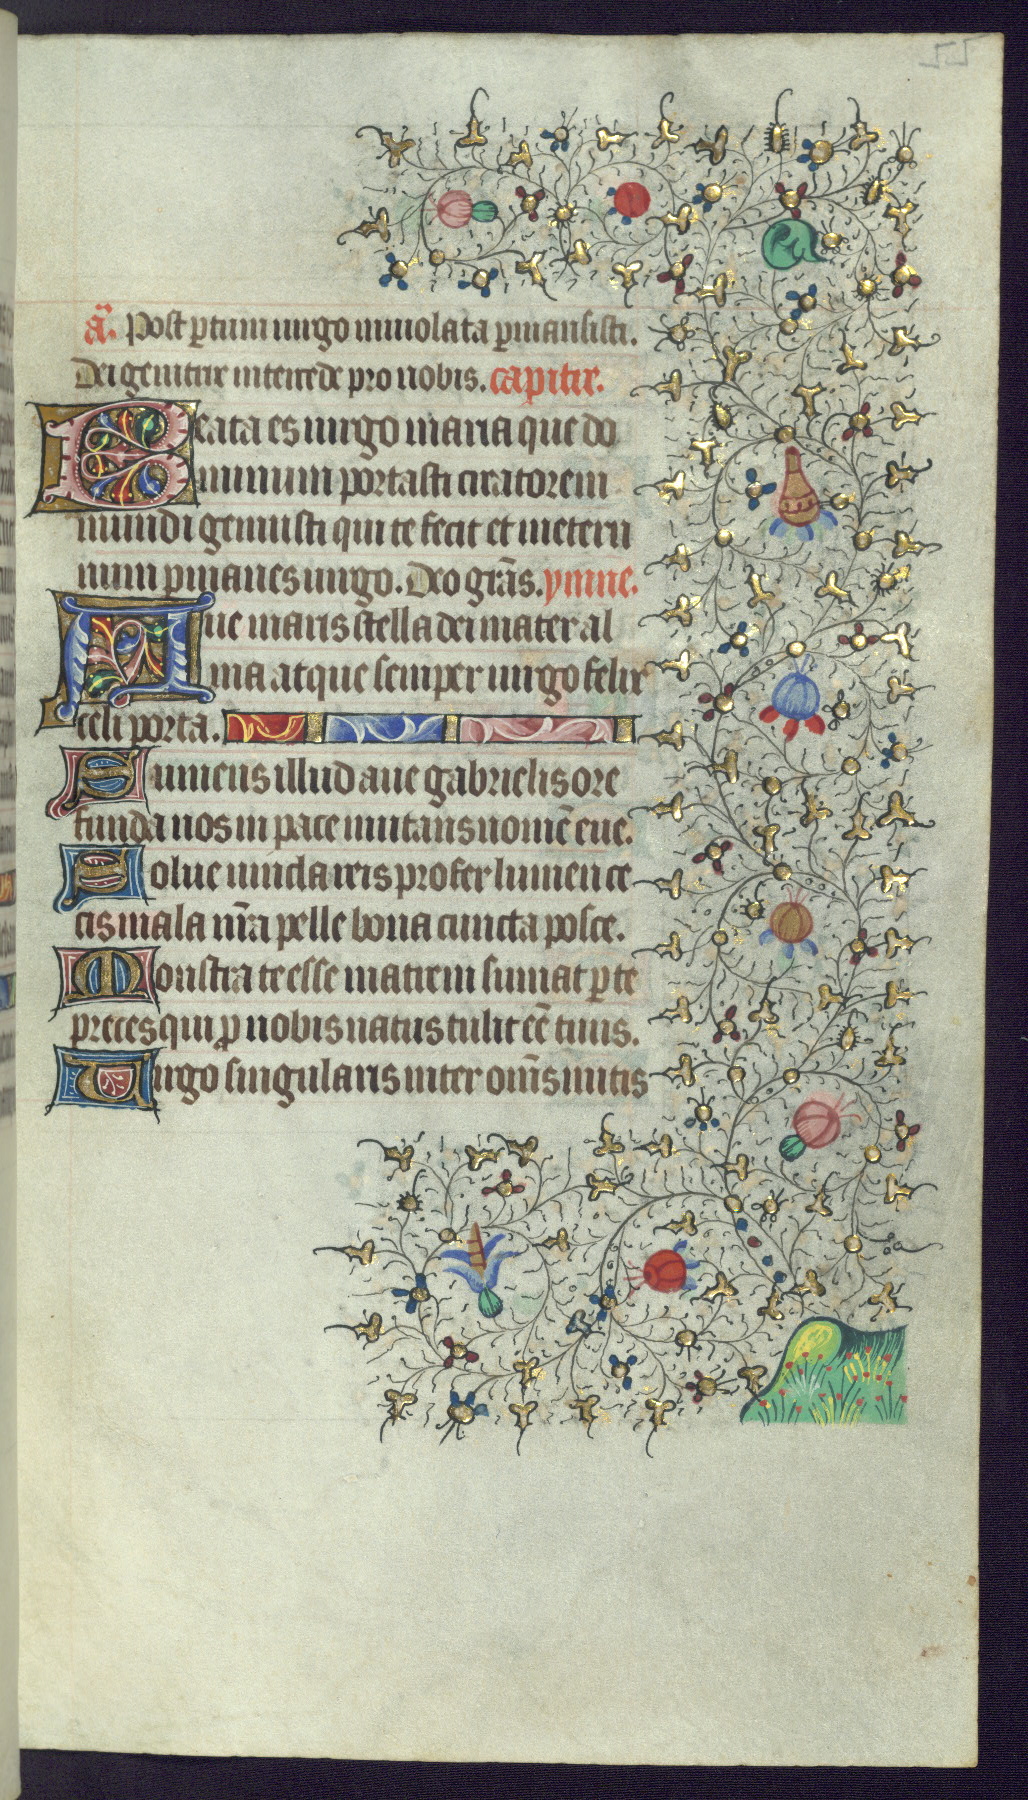 añ. Post ꝑtum uirgo inuiolata ꝑmansisti.
Dei genitrix intercede pro nobis. capitĩ.
Beata es uirgo maria que do
minum portasti creatorem
mundi genuisti qui te fecit et in eter
num ꝑmanes uirgo. Deo grãs. ymne.
Aue maris stella dei mater al
ma atque semper uirgo felix
celi porta.
Sumens illud aue gabrielis ore
funda nos in pace mutans nomẽ eue.
Solue uincla reis profer lumen ce
cis mala nr̃a pelle bona cuncta posce.
Monstra te esse matrem sumat ꝑ te
preces qui ꝓ nobis natus tulit eẽ tuus.
Uirgo singularis inter om̃s mitis